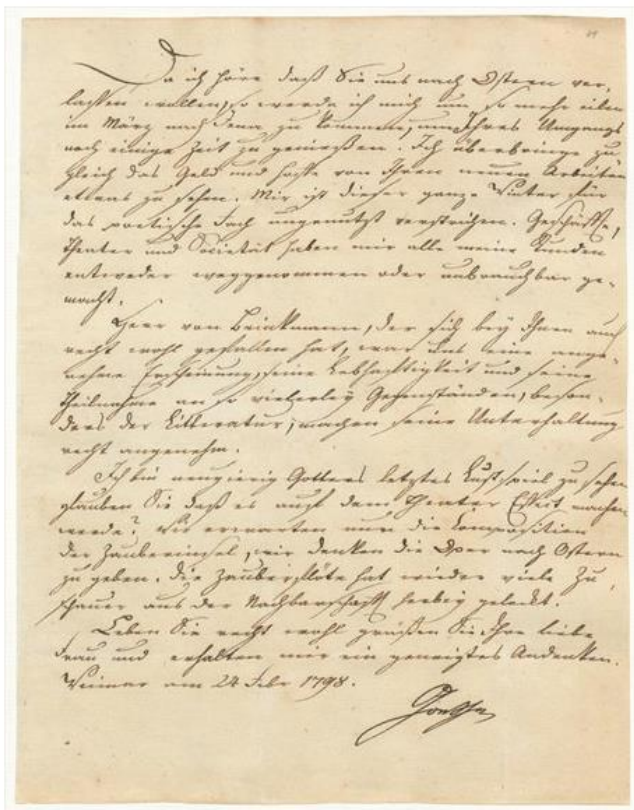 Da ich höre daß Sie uns nach Ostern ver-
lassen wollen, so werde ich mich um so mehr eilen
im März nach Jena zu kommen, um Ihres Umgangs
noch einige Zeit zu genießen. Ich überbringe zu
gleich das Geld und hoffe von Ihren neuen Arbeiten
etwas zu sehen. Mir ist dieser ganze Winter für
das poetische Fach ungenutzt verstrichen. Geschäffte,
Theater und Societät haben mir alle meine Stunden
entweder weggenommen oder unbrauchbar ge-
macht.
Herr von Brinkmann, der sich bey Ihnen auch
recht wohl gefallen hat, war uns eine ange-
nehme Erscheinung, seine Lebhaftigkeit und seine
Theilnahme an so vielerley Gegenständen, beson-
ders der Litteratur, machen seine Unterhaltung
recht angenehm.
Ich bin neugierig Gotters letztes Lustspiel zu sehen
glauben Sie daß es auf dem Theater Effect machen
werde? Wir erwarten nun die Composition
der Zauberinsel, wir denken die Oper nach Ostern
zu geben. Die Zauberflöte hat wieder viele Zu-
schauer aus der Nachbarschafft herbey gelockt.
Leben Sie recht wohl grüßen Sie Ihre liebe
Frau und erhalten mir ein geneigtes Andenken.
Weimar am 24 Febr 1798.
Goethe